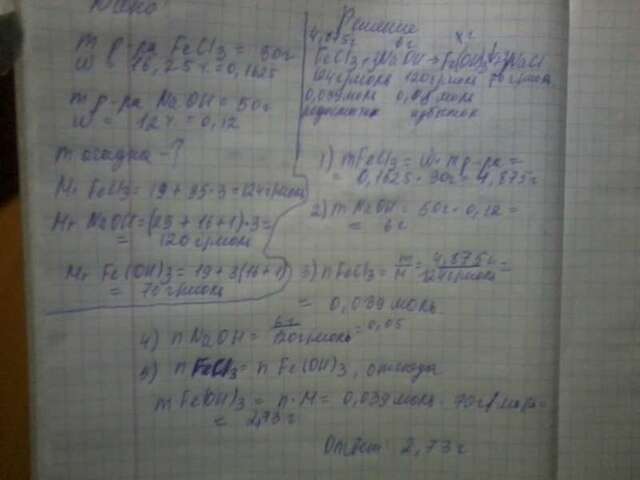 Дано!
m р-ра FeCl3 = 30г
W = 16,25% = 0,1625
m р-ра NaOH = 50г
W = 12% = 0,12
m осадка - ?
Mr FeCl3 = 19 + 35·3 = 124г/моль
Mr NaOH = (23 + 16 + 1)·3 =
= 120 г/моль
Mr Fe(OH)3 = 19 + 3(16+1)
= 70 г/моль
Решение
4,875г 6г xг
FeCl3 + 3NaOH → Fe(OH)3↓ + 3NaCl
124г/моль 120г/моль 70 г/моль
0,039моль моль
недостаток избыток
1) mFeCl3 = W · m р-ра =
= 0,1625 · 30г = 4,875г
2) m NaOH = 50г · 0,12 =
= 6г
3) n FeCl3 = m/M = 4,875г/124г/моль =
= 0,039 моль
4) n NaOH = 6г/120г/моль = 0,05
5) n FeCl3 = n Fe(OH)3, отсюда
m Fe(OH)3 = n · M = 0,039 моль · 70г/моль =
= 2,73 г
Ответ 2,73 г